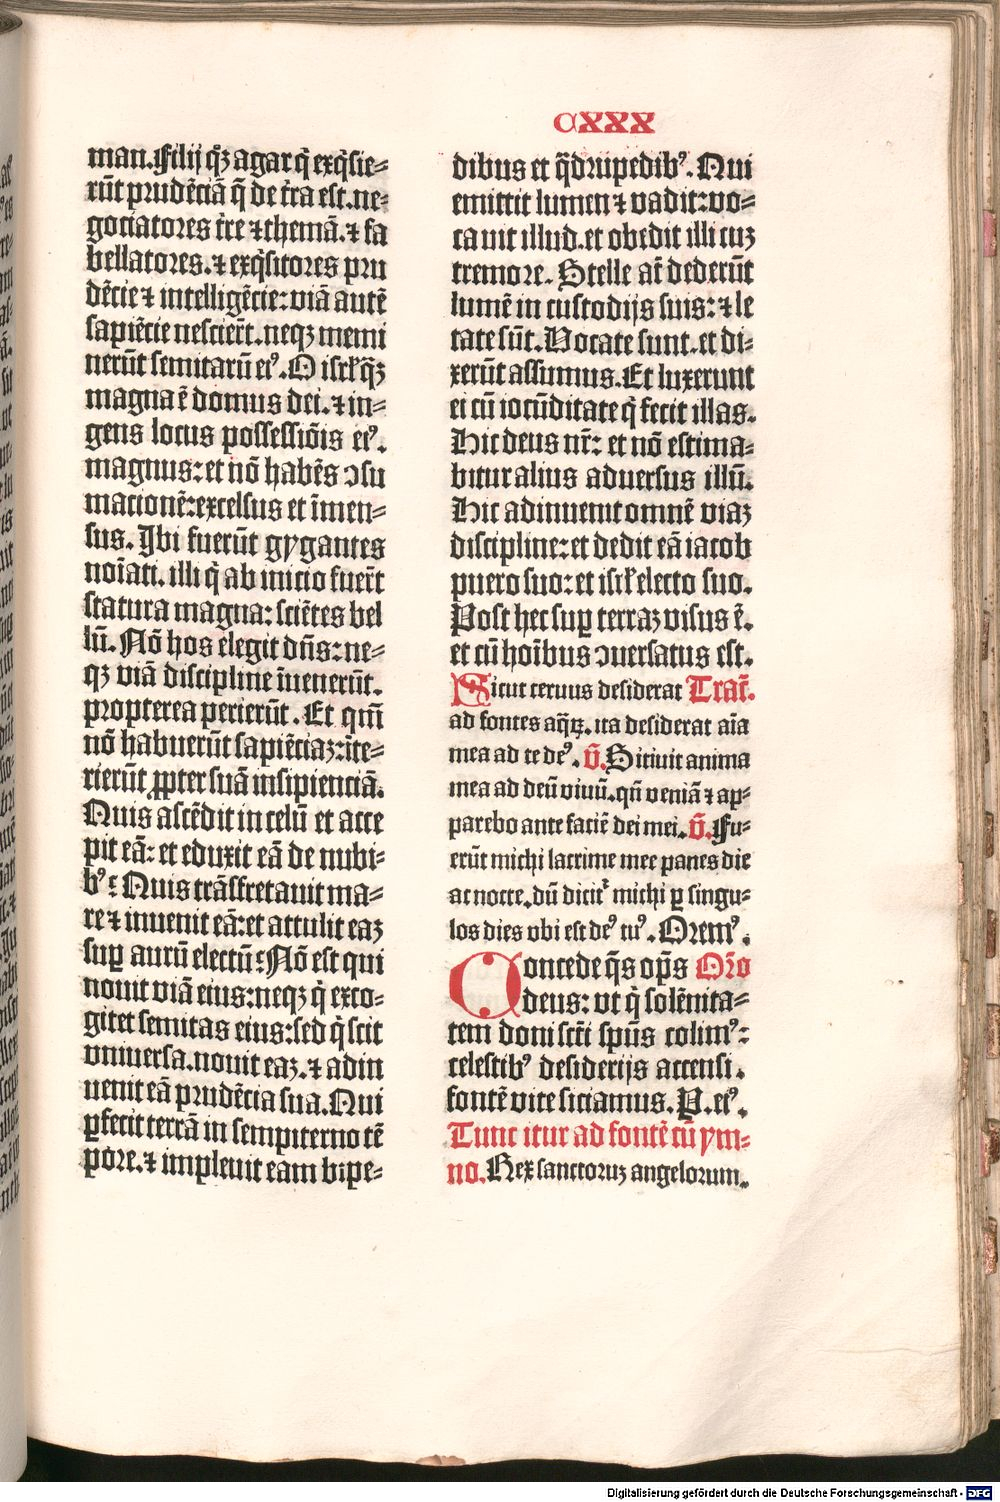 CXXX
man. Filij qꝫ agar q̄ exq̄sie⸗
rūt prudēciā q̄ de t̄ra est. ne⸗
gociatores t̄re ⁊ themā. ⁊ fa
bellatores. ⁊ exq̄sitores pru
dēcie ⁊ intelligēcie: viā autē
sapiēcie nescier̄t. neqꝫ memi
nerūt semitarū eiꝰ. O isrl̄ q̄ꝫ
magna ē domus dei. ⁊ in⸗
gens locus possessiōis eiꝰ.
magnus: et nō habēs ↄsu
mationē: excelsus et īmen⸗
sus. Ibi fuerūt gygantes
noīati. illi q̄ ab inicio fuer̄t
statura magna: sciētes bel
lū. Nō hos elegit dn̄s: ne⸗
qꝫ viā discipline īuenerūt.
propterea perierūt. Et qm̄
nō habuerūt sapiēciaꝫ: īte⸗
rierūt ꝓpter suā insipienciā.
Quis ascēdit in celū et acce
pit eā: et eduxit eā de nubi⸗
bꝰ: Quis trāsfretauit ma⸗
re ⁊ inuenit eā: et attulit eaꝫ
suꝑ aurū electū: Nō est qui
nouit viā eius: neqꝫ q̄ exco⸗
gitet semitas eius: sed q̄ scit
vniuersa. nouit eaꝫ. ⁊ adin
uenit eā prudēcia sua. Qui
ꝑfecit terrā in sempiterno tē
pore. ⁊ impleuit eam bipe⸗
dibus et q̄drupedibꝰ. Qui
emittit lumen ⁊ vadit: vo⸗
cauit illud. et obedit illi cuꝫ
tremore. Stelle at̄ dederūt
lumē in custodijs suis: ⁊ le
tate sūt. Vocate sunt. et di⸗
xerūt assumus. Et luxerunt
ei cū iocūditate q̄ fecit illas.
Hic deus nr̄: et nō estima⸗
bitur alius aduersus illū.
Hic adinuenit omnē viaꝫ
discipline: et dedit eā iacob
puero suo: et isrl̄ electo suo.
Post hec suꝑ terraꝫ visus ē.
et cū hoībus ↄuersatus est.
Sicut ceruus desiderat Tract̄.
ad fontes aq̄ꝝ. ita desiderat aīa
mea ad te deꝰ. v̄. Sitiuit anima
mea ad deū viuū. qn̄ veniā ⁊ ap⸗
parebo ante faciē dei mei. v̄. Fu⸗
erūt michi lacrime mee panes die
ac nocte. dū dicit᷑ michi ꝑ singu⸗
los dies vbi est deꝰ tuꝰ. Oremꝰ.
Concede q̄s op̄s Or̄o
deus: vt q̄ solēnita⸗
tem doni sct̄i spūs colimꝰ:
celestibꝰ desiderijs accensi.
fontē vite siciamus. P. eiꝰ.
Tunc itur ad fontē cū ym⸗
no. Rex sanctoruꝫ angelorum.
Digitalisierung gefördert durch die Deutsche Forschungsgemeinschaft - DFG